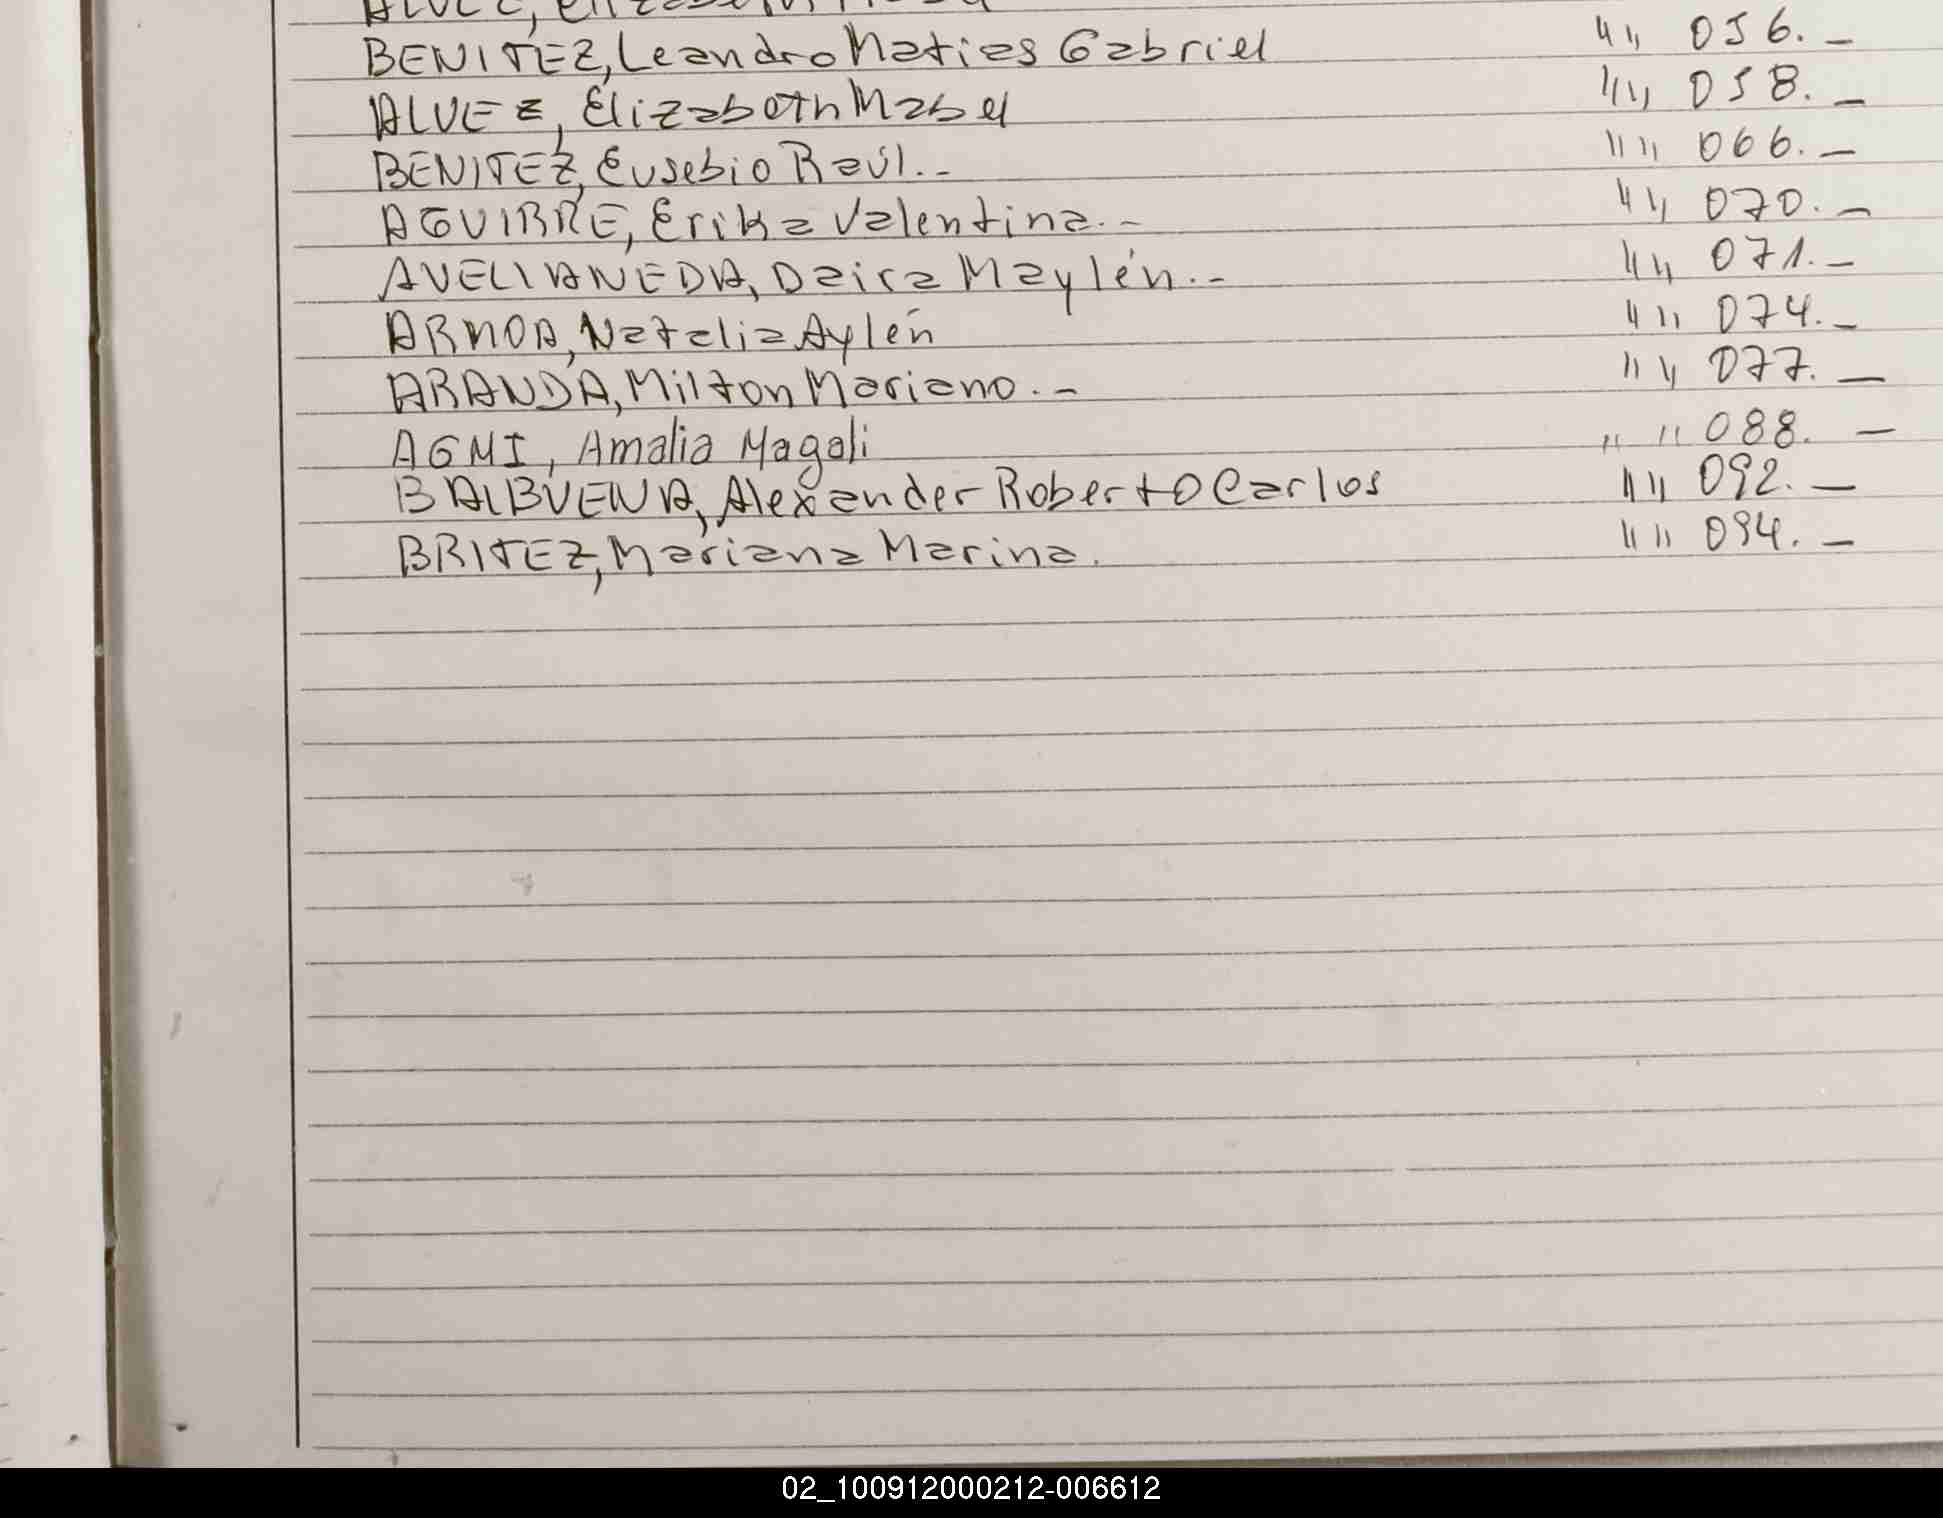 BENITEZ, Leandro Matias Gabriel " " 056. _
ALVEZ, Elizaboth Mabel " " 058. _
BENITEZ, Eusebio Raúl. - " " 066. _
AGUIRRE, Erika Valentina. - " " 070. _
AVELLANEDA, Daira Maylén. - " " 071. _
ARNOA, Natalia Aylén " " 074. _
ARANDA, Milton Mariano. - " " 077. _
AGMI, Amalia Magali " " 088. _
BALBUENA, Alexander Roberto Carlos " " 092. _
BRITEZ, Mariana Marina. " " 094. _
02_100912000212-006612